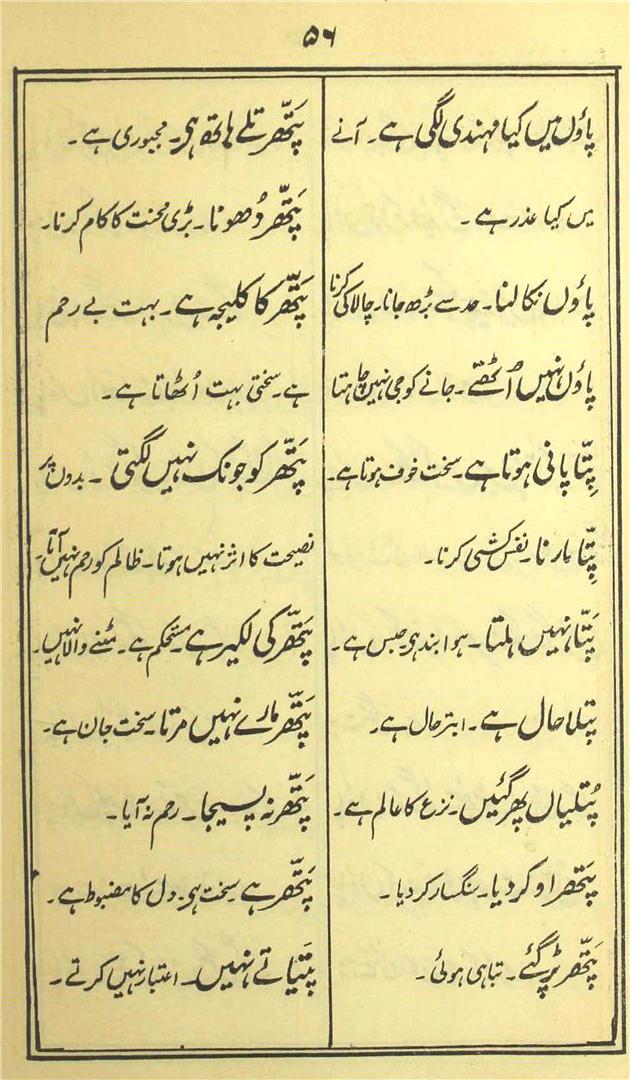 ۵۶
پاؤں میں کیا مہندی لگی ہے۔ آنے
میں کیا عذر ہے۔
پاؤں نکالنا۔ حد سے بڑھ جانا۔ چالاکی کرنا
پاؤں نہیں اُٹھتے۔ جانے کو جی نہیں چاہتا
پِتّا پانی ہوتا ہے۔ سخت خوف ہوتا ہے۔
پِتّا مارنا۔ نفس کشی کرنا۔
پَتّا نہیں ہلتا۔ ہوا بند ہی حبس ہے۔
پتلا حال ہے۔ ابتر حال ہے۔
پُتلیاں پھر گئیں۔ نزع کا عالم ہے۔
پَتھراو کر دیا۔ سنگسار کر دیا۔
پَتّھر پڑ گئے۔ تباہی ہوئی۔
پَتّھر تلے ہاتھ ہی۔ مجبوری ہے۔
پَتّھر ڈھونا۔ بڑی محنت کا کام کرنا۔
پَتّھر کا کلیجہ ہے۔ بہت بے رحم
ہے۔ سختی بہت اُٹھاتا ہے۔
پَتّھر کو جونک نہیں لگتی۔ بدوں پر
نصیحت کا اثر نہیں ہوتا۔ ظالم کو رحم نہیں آتا۔
پَتّھر کی لکیر ہے۔ مستحکم ہے۔ مٹنے والا نہیں۔
پَتّھر مارے نہیں مرتا۔ سخت جان ہے۔
پَتّھر نہ پسیجا۔ رحم نہ آیا۔
پَتّھر ہے۔ سخت ہی۔ دل کا مضبوط ہے۔
پَتیاتے نہیں۔ اعتبار نہیں کرتے۔